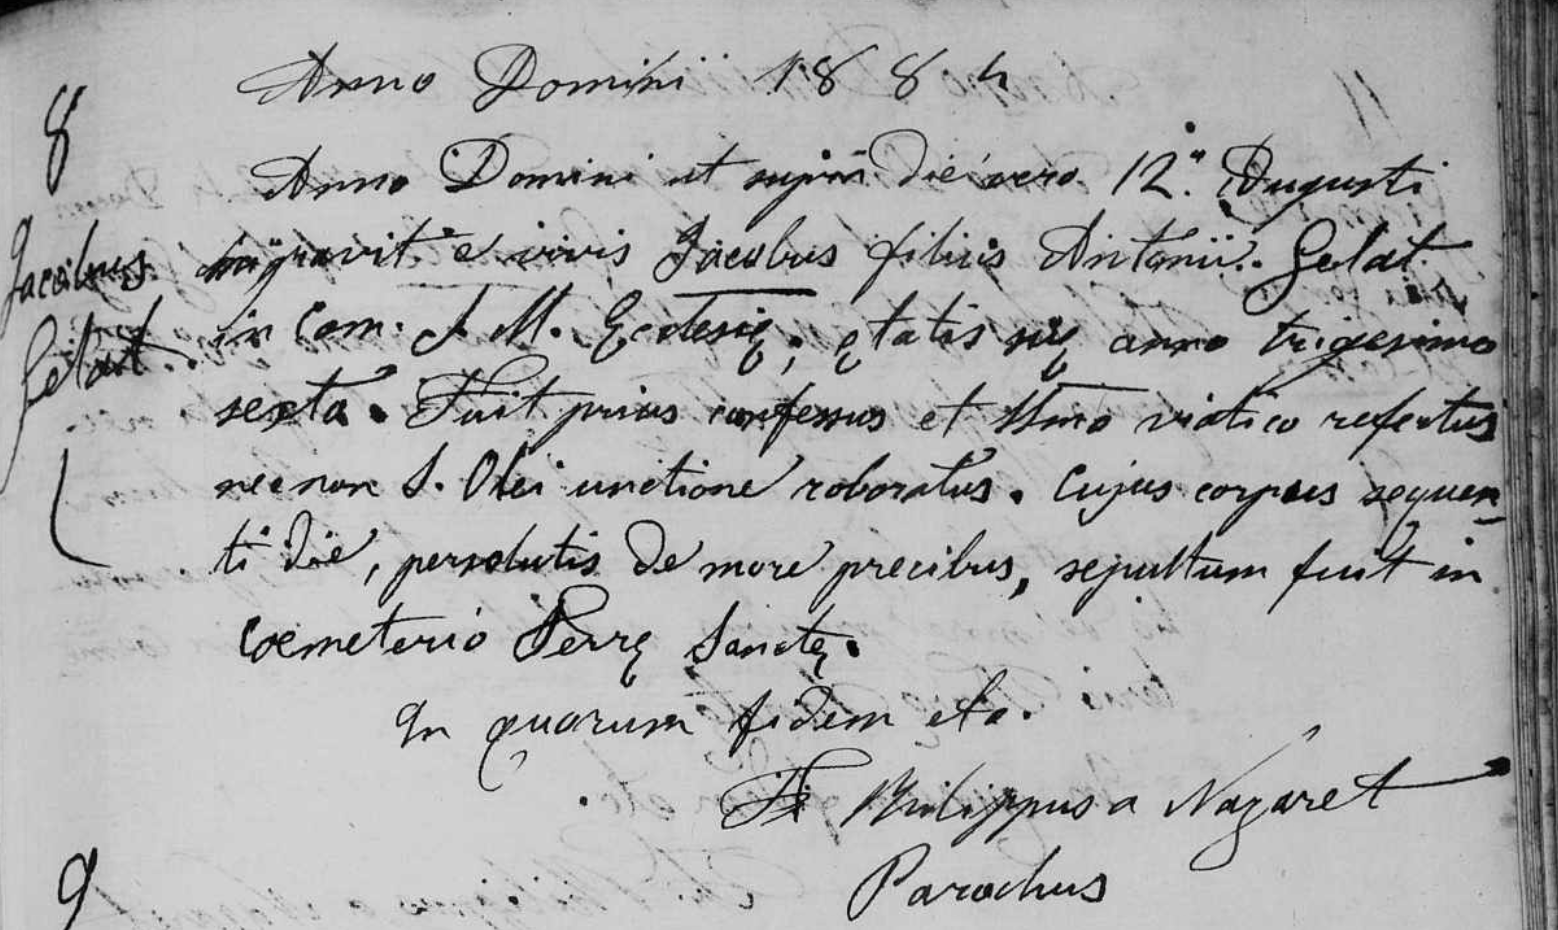 Anno Domini 1884
8
Anno Domini ut supra die vero 12.a Augusti
Jacobus
migravit e vivis Jacobus filius Antonii Gelat
Gelat
in Com. S. M. Ecclesię, ętatis suę anno trigesimo
sexto. Fuit prius confessus et SSmo viatico refectus
necnon S. Olei unctione roboratus. Cujus corpus sequen-
ti die, persolutis de more precibus, sepultum fuit in
Coemeterio Terrę Sanctę.
In quorum fidem etc.
Fr Philippus a Nazaret
Parochus
9